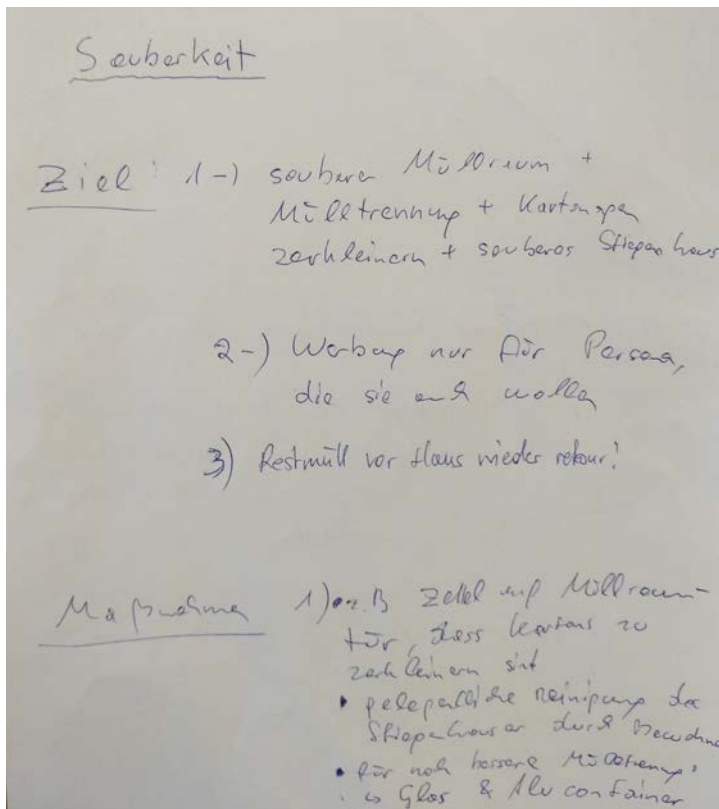 Sauberkeit
Ziel: 1-) sauberer Müllraum +
Mülltrennung + Kartonagen
zerkleinern + sauberes Stiegenhaus
2-) Werbung nur für Personen,
die sie auch wollen
3) Restmüll vor Haus wieder retour!
Maßnahmen 1) z.B Zettel auf Müllraum-
tür, dass Kartons zu
zerkleinern sind
• gelegentliche Reinigung der
Stiegenhäuser durch Bewohner
• für noch bessere Mülltrennung
↳ Glas & Alu container